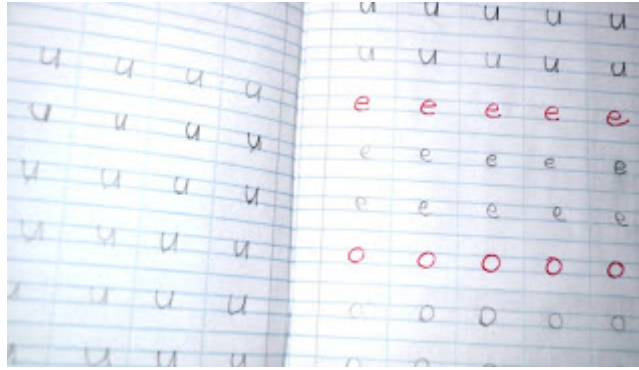 u u u u
u u u u
u u u u
u u u u
u u u
u u u
u u u u u
u u u u u
e e e e e
e e e e e
e e e e e
o o o o o
o o o o o